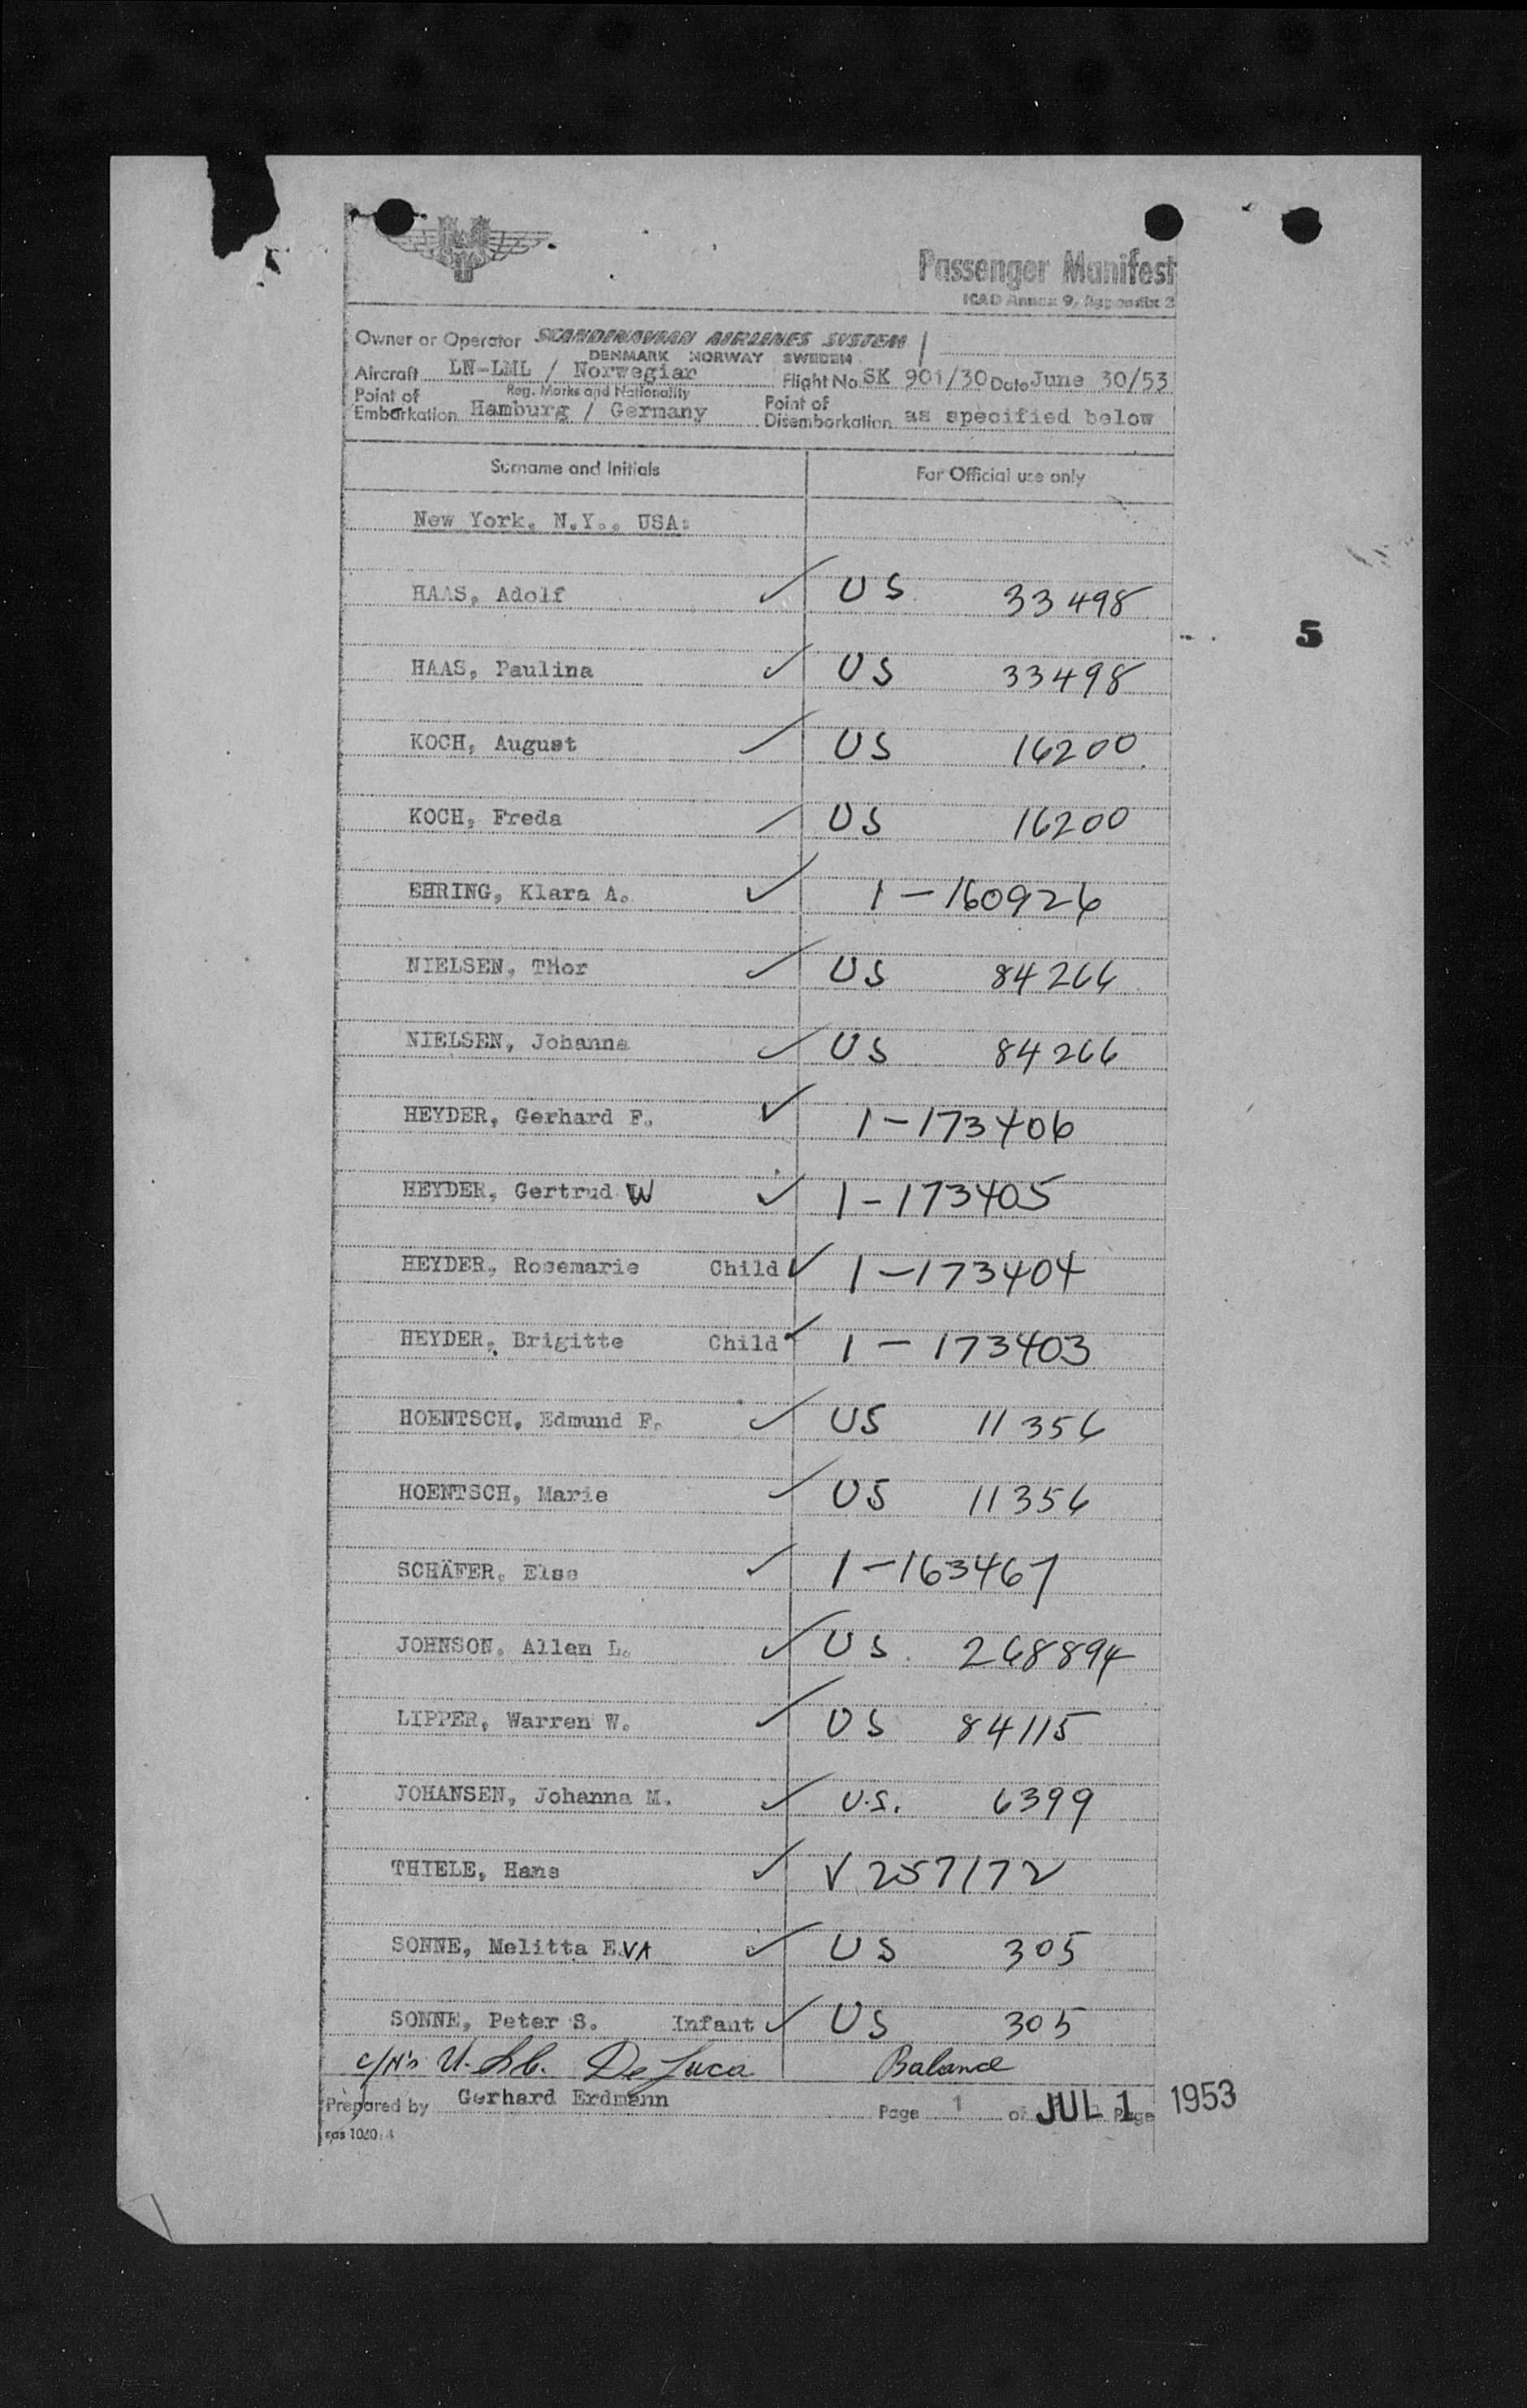 Passenger Manifest
ICAO Annex 9, Appendix 2
Owner or Operator SCANDINAVIAN AIRLINES SYSTEM
DENMARK NORWAY SWEDEN
Aircraft LN-LML / Norwegian Flight No. SK 901/30 Date June 30/53
Reg. Marks and Nationality
Point of Embarkation Hamburg / Germany Point of Disembarkation as specified below
Surname and Initials For Official use only
New York, N.Y., USA:
HAAS, Adolf US 33498
5
HAAS, Paulina US 33498
KOCH, August US 16200
KOCH, Freda US 16200
EHRING, Klara A. 1-160926
NIELSEN, THor US 84266
NIELSEN, Johanna US 84266
HEYDER, Gerhard F. 1-173406
HEYDER, Gertrud W 1-173405
HEYDER, Rosemarie Child 1-173404
HEYDER, Brigitte Child 1-173403
HOENTSCH, Edmund F. US 11356
HOENTSCH, Marie US 11356
SCHÄFER, Else 1-163467
JOHNSON, Allen L. US 268894
LIPPER, Warren W. US 84115
JOHANSEN, Johanna M. U.S. 6399
THIELE, Hans V 257172
SONNE, Melitta EVA US 305
SONNE, Peter S. Infant US 305
c/n's De Luca Balance
Prepared by Gerhard Erdmann Page 1 of Page
JUL 1 1953